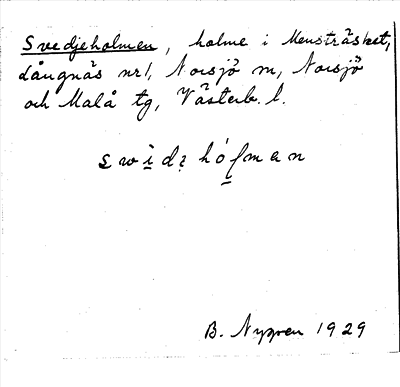 Svedjeholmen, holme i Mensträsket,
Långnäs nr 1, Norsjö sn, Norsjö
och Malå tg, Västerb. l.
B. Nygren 1929